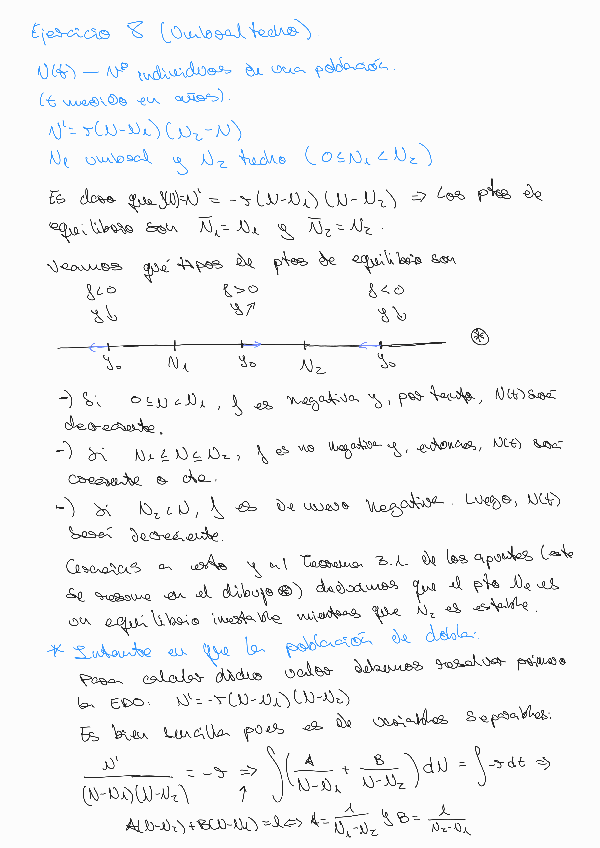 Ejercicio 8 (Umbral techo)
N(t) — Nº individuos de una población.
(t medido en años).
N' = r(N-N₁)(N₂-N)
N₁ umbral y N₂ techo (0≤N₁<N₂)
Es claro que f(N)=N' = -r(N-N₁)(N-N₂) ⇒ Los ptos de
equilibrio son N̄₁=N₁ y N̄₂=N₂.
Veamos qué tipos de ptos de equilibrio son
f<0 f>0 f<0
y↓ y↗ y↓
y₀ N₁ y₀ N₂ y₀ ⊛
-) Si 0≤N<N₁, f es negativa y, por tanto, N(t) será
decreciente.
-) Si N₁≤N≤N₂, f es no negativa y, entonces, N(t) será
creciente o cte.
-) Si N₂<N, f es de nuevo negativa. Luego, N(t)
será decreciente.
Gracias a esto y al Teorema 3.1. de los apuntes (este
se resume en el dibujo ⊛) deducimos que el pto N₁ es
un equilibrio inestable mientras que N₂ es estable.
* Instante en que la población se dobla.
Para calcular dicho valor debemos resolver primero
la EDO: N'=-r(N-N₁)(N-N₂)
Es bien sencilla pues es de variables separables:
N'/((N-N₁)(N-N₂)) = -r ⇒ ∫(A/(N-N₁) + B/(N-N₂)) dN = ∫-r dt ⇒
↑
A(N-N₂)+B(N-N₁)=1 ⇔ A= 1/(N₁-N₂) y B= 1/(N₂-N₁)